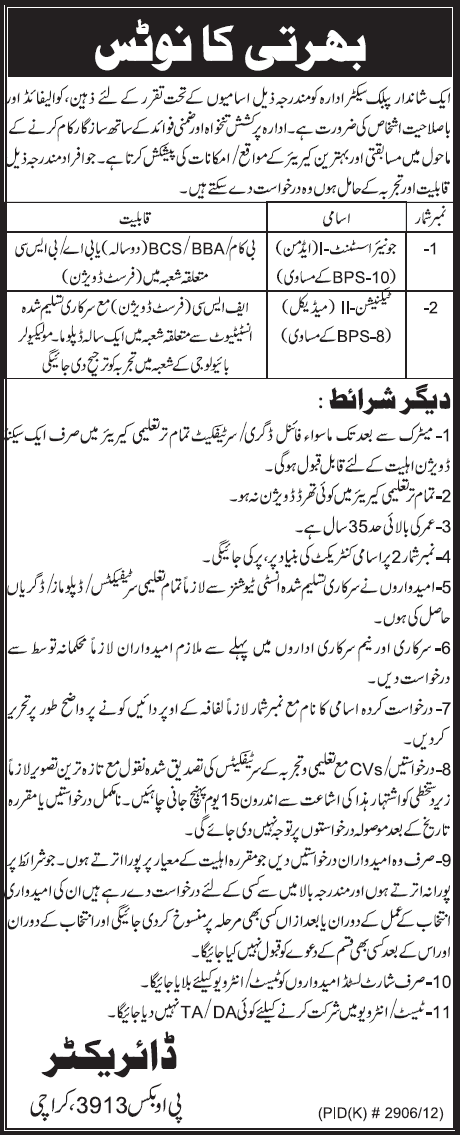 بھرتی کا نوٹس
ایک شاندار پبلک سیکٹر ادارہ کو مندرجہ ذیل اسامیوں کے تحت تقرر کے لئے ذہین، کوالیفائڈ اور
باصلاحیت اشخاص کی ضرورت ہے۔ ادارہ پرکشش تنخواہ اور ضمنی فوائد کے ساتھ سازگار کام کرنے کے
ماحول میں مسابقتی اور بہترین کیریئر کے مواقع/امکانات کی پیشکش کرتا ہے۔ جو افراد مندرجہ ذیل
قابلیت اور تجربہ کے حامل ہوں وہ درخواست دے سکتے ہیں۔
نمبر شمار اسامی قابلیت
1- جونیئر اسسٹنٹ-I (ایڈمن) بی کام/BCS/BBA (دو سالہ) یا بی اے/بی ایس سی
(BPS-10 کے مساوی) متعلقہ شعبہ میں (فرسٹ ڈویژن)
2- ٹیکنیشن-II (میڈیکل) ایف ایس سی (فرسٹ ڈویژن) مع سرکاری تسلیم شدہ
(BPS-8 کے مساوی) انسٹیٹیوٹ سے متعلقہ شعبہ میں ایک سالہ ڈپلوما۔ مولیکیولر
بائیولوجی کے شعبہ میں تجربہ کو ترجیح دی جائیگی
دیگر شرائط :
1- میٹرک سے بعد تک ماسواء فائنل ڈگری/سرٹیفکیٹ تمام تر تعلیمی کیریئر میں صرف ایک سیکنڈ
ڈویژن اہلیت کے لئے قابل قبول ہوگی۔
2- تمام تر تعلیمی کیریئر میں کوئی تھرڈ ڈویژن نہ ہو۔
3- عمر کی بالائی حد 35 سال ہے۔
4- نمبر شمار 2 پر اسامی کنٹریکٹ کی بنیاد پر، پر کی جائیگی۔
5- امیدواروں نے سرکاری تسلیم شدہ انسٹی ٹیوشنز سے لازماً تمام تعلیمی سرٹیفکیٹس/ڈپلوماز/ڈگریاں
حاصل کی ہوں۔
6- سرکاری اور نیم سرکاری اداروں میں پہلے سے ملازم امیدواران لازماً محکمانہ توسط سے
درخواست دیں۔
7- درخواست کردہ اسامی کا نام مع نمبر شمار لازماً لفافہ کے اوپر دائیں کونے پر واضح طور پر تحریر
کردیں۔
8- درخواستیں/CVs مع تعلیمی و تجربہ کے سرٹیفکیٹس کی تصدیق شدہ نقول مع تازہ ترین تصویر لازماً
زیر دستخطی کو اشتہار ہذا کی اشاعت سے اندرون 15 یوم پہنچ جانی چاہئیں۔ نامکمل درخواستیں یا مقررہ
تاریخ کے بعد موصولہ درخواستوں پر توجہ نہیں دی جائے گی۔
9- صرف وہ امیدواران درخواستیں دیں جو مقررہ اہلیت کے معیار پر پورا اترتے ہوں۔ جو شرائط پر
پورا نہ اترتے ہوں اور مندرجہ بالا میں سے کسی کے لئے درخواست دے رہے ہیں ان کی امیدواری
انتخاب کے عمل کے دوران یا بعد ازاں کسی بھی مرحلہ پر منسوخ کردی جائیگی اور انتخاب کے دوران
اور اس کے بعد کسی بھی قسم کے دعوے کو قبول نہیں کیا جائیگا۔
10- صرف شارٹ لسٹڈ امیدواروں کو ٹیسٹ/انٹرویو کیلئے بلایا جائیگا۔
11- ٹیسٹ/انٹرویو میں شرکت کرنے کیلئے کوئی TA/DA نہیں دیا جائیگا۔
ڈائریکٹر
پی او بکس 3913، کراچی
(PID(K) # 2906/12)